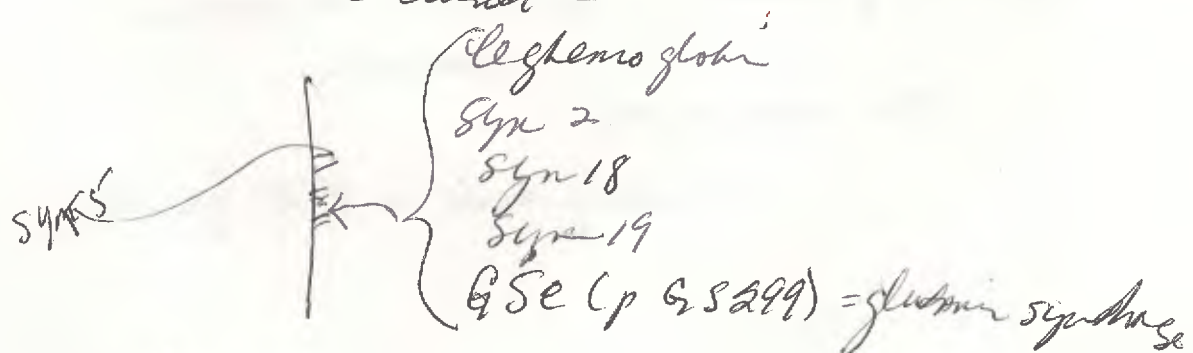 leghemoglobin
Sym 2
Sym 18
Sym 19
GSe (pGS299) = glutamin synthase
sym5